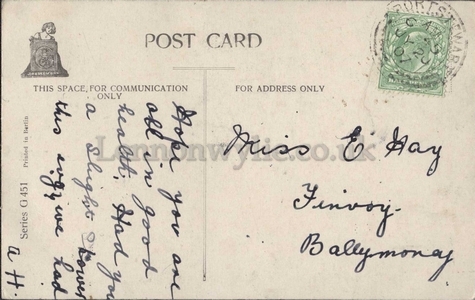 POST CARD
THIS SPACE, FOR COMMUNICATION
ONLY
FOR ADDRESS ONLY
PORTSTEWAR
Hope you are
all in good
health. Had you
a slight shower
this evg, we had
A H.
Miss E Hay
Finvoy
Ballymoney
Series G 451 Printed in Berlin
Lennonwylie.co.uk